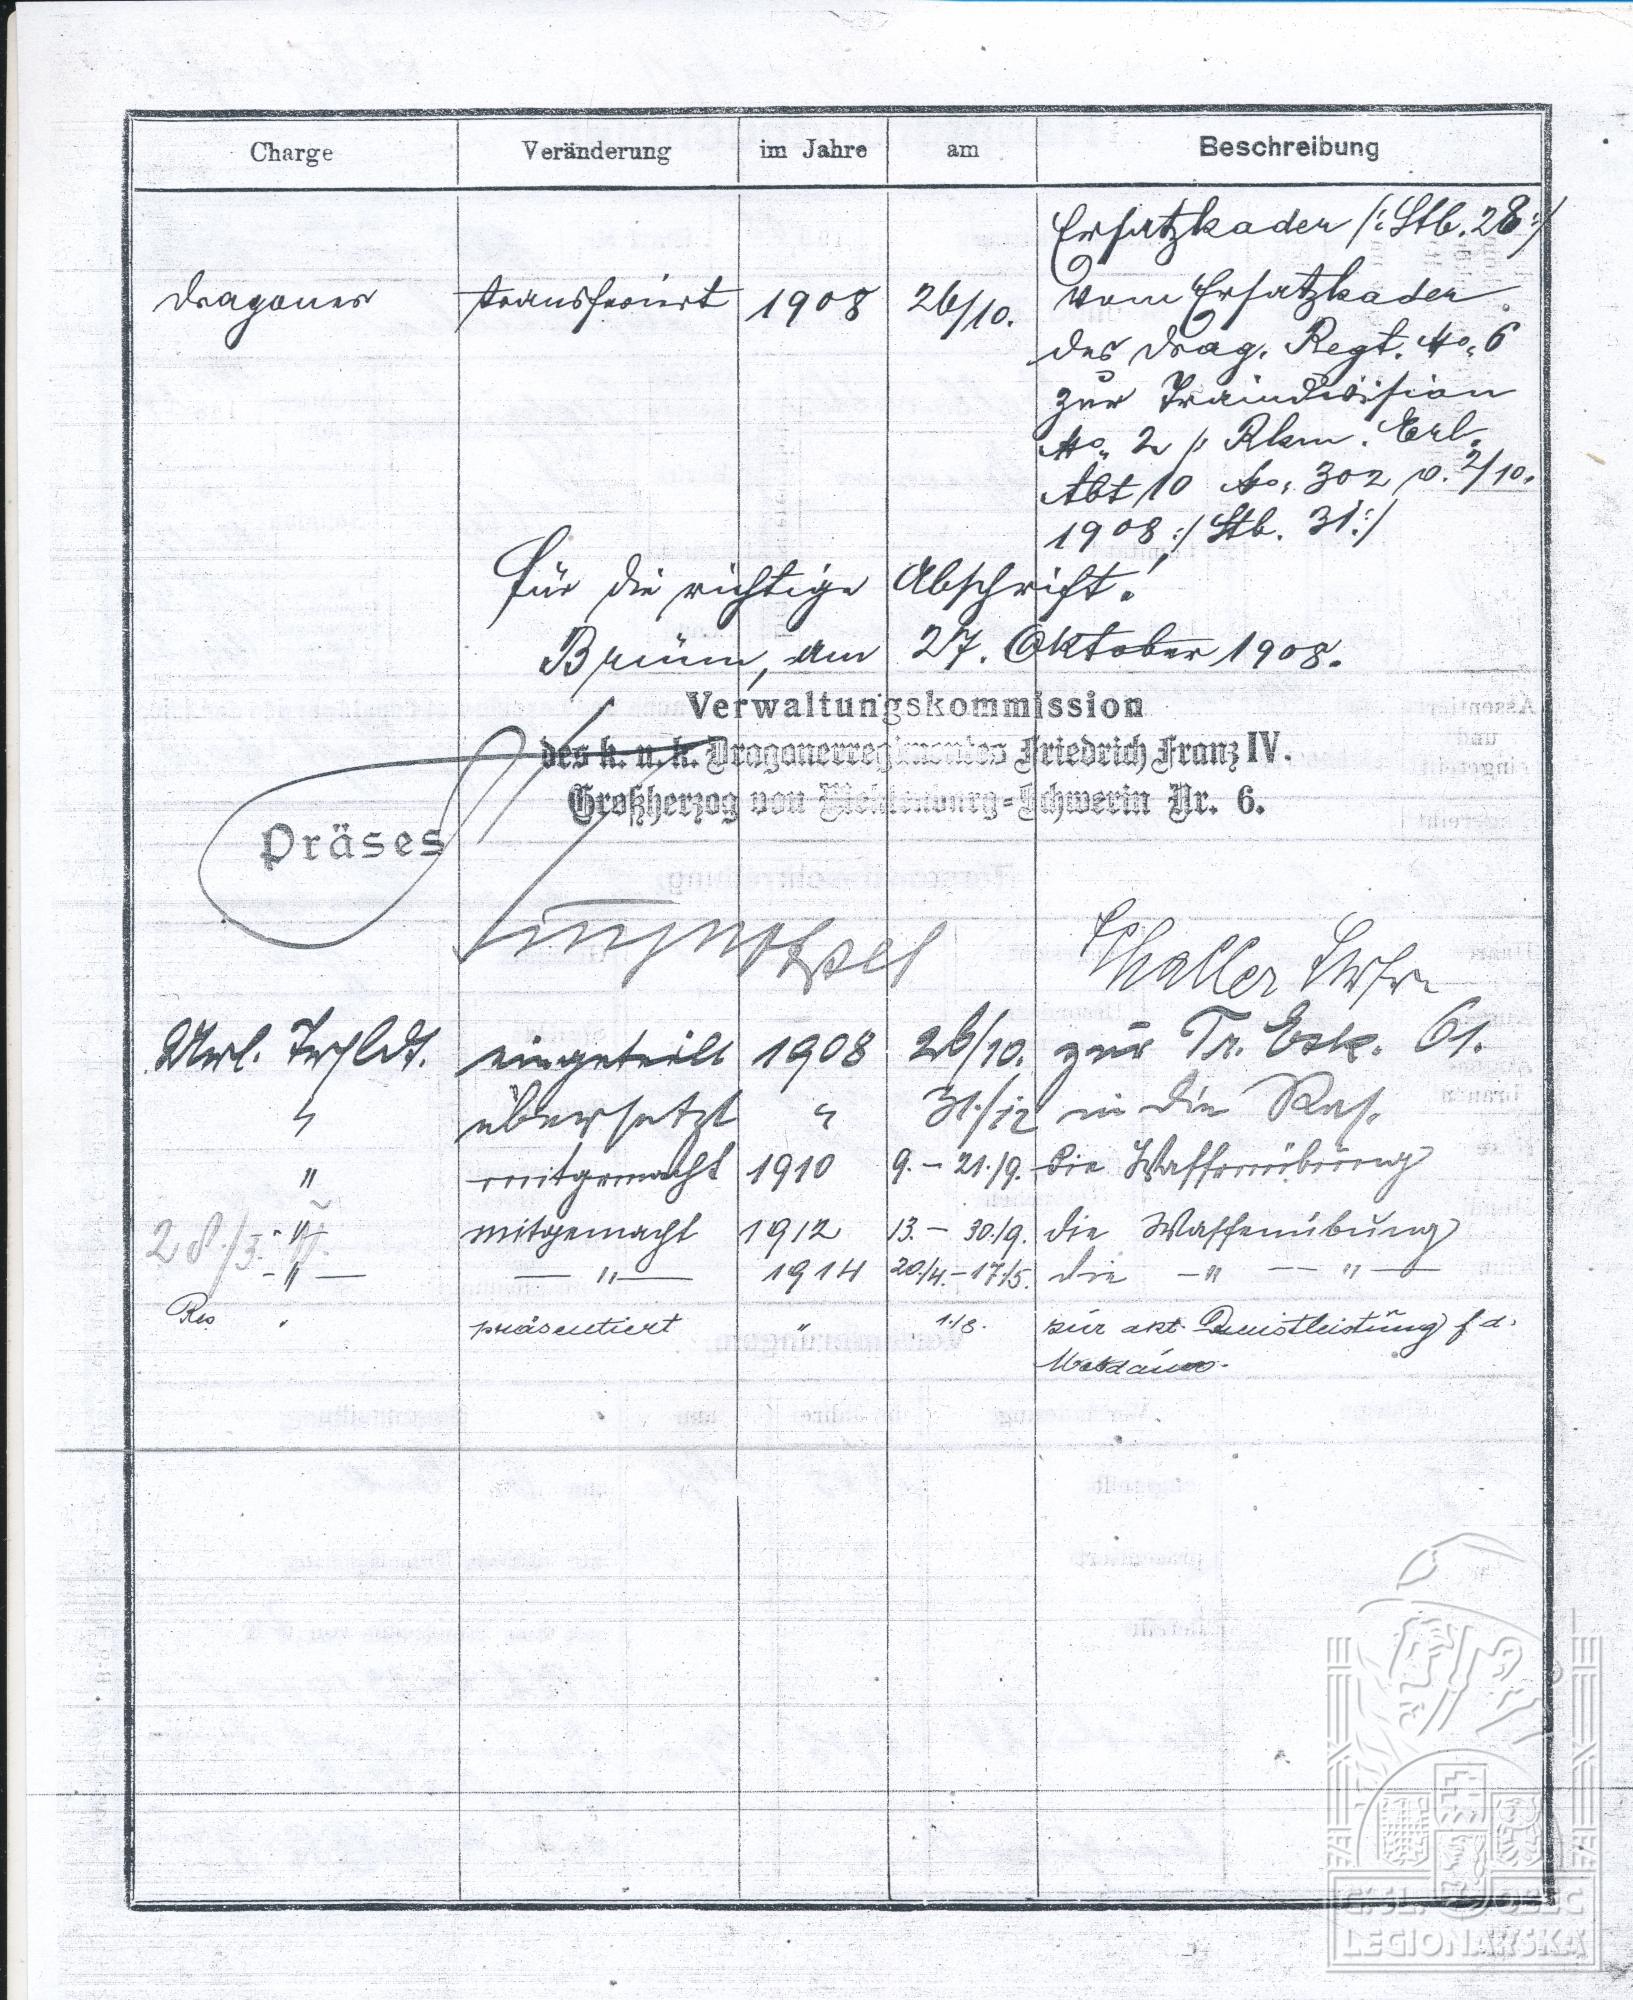 Charge Veränderung im Jahre am Beschreibung
Ersatzkader /:Stb. 28:/
Dragoner transferiert 1908 26/10. vom Ersatzkader
des Drag. Regt. No. 6
zur Traindivision
No. 2 /: Rkm. Erl.
Abt 10 No. 302 v. 2/10.
1908:/ Stb. 31:/
Für die richtige Abschrift!
Brünn, am 27. Oktober 1908.
Verwaltungskommission
des k. u. k. Dragonerregimentes Friedrich Franz IV.
Großherzog von Mecklenburg-Schwerin Nr. 6.
Präses
Thaller
eingeteilt 1908 26/10. zur Tr. Esk. 61.
" übersetzt " 31./12 in die Res.
" mitgemacht 1910 9. – 21./9. die Waffenübung
28./3. " mitgemacht 1912 13. – 30./9. die Waffenübung
– " – — " — 1914 20./4. – 17./5. die – " — " —
Res präsentiert " 1./8. zur akt. Dienstleistung f. d.